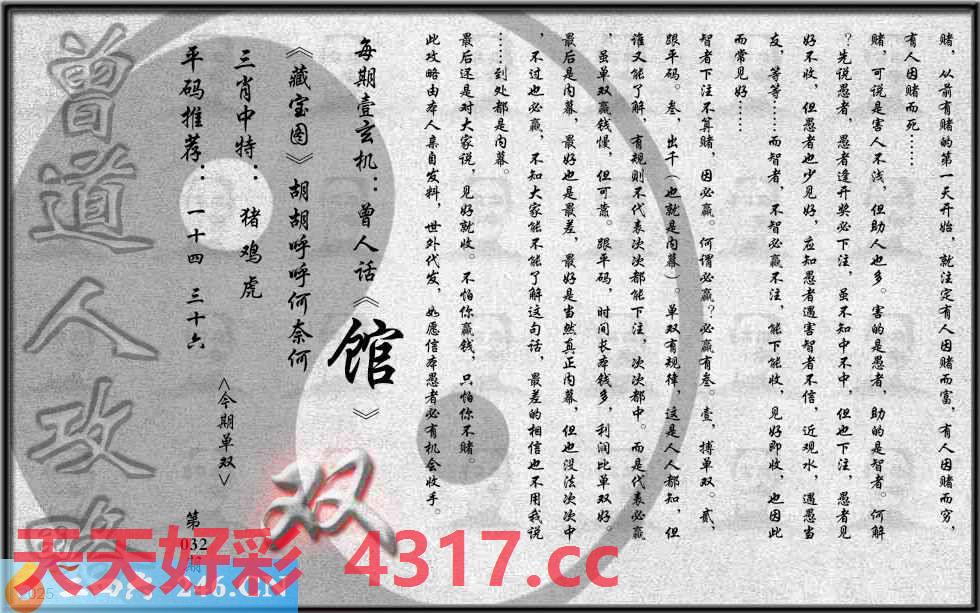 赌，从前有赌的第一天开始，就注定有人因赌而富，有人因赌而穷，
有人因赌而死……
赌，可说是害人不浅，但助人也多。害的是愚者，助的是智者。何解
？先说愚者，愚者逢开奖必下注，虽不知中不中，但也下注，愚者见
好不收，但愚者也少见好，应知愚者遇害智者不信，近观水，遇愚当
友，等等……而智者，不智必赢不注，能下能收，见好即收，也因此
而常见好……
智者下注不算赌，因必赢。何谓必赢？必赢有叁。壹，搏单双。贰，
跟平码。叁，出千（也就是内幕）。单双有规律，这是人人都知，但
谁又能了解，有规则不代表次次都能下注，次次都中。而是代表必赢
，虽单双赢钱慢，但可靠。跟平码，时间长本钱多，利润比单双好。
最后是内幕，最好也是最差，最好是当然真正内幕，但也没法次次中
，不过也必赢，不知大家能不能了解这句话，最差的相信也不用我说
……到处都是内幕。
最后还是对大家说，见好就收。不怕你赢钱，只怕你不赌。
此攻略由本人亲自发料，世外代发，如愿信本愚者必有机会收手。
每期壹玄机：曾人话《馆》
《藏宝图》胡胡呼呼何奈何
三肖中特：猪鸡虎
平码推荐：一十四 三十六
<今期单双>
双
第032期
曾道人攻略
天天好彩 4317.cc
2025
246.CN